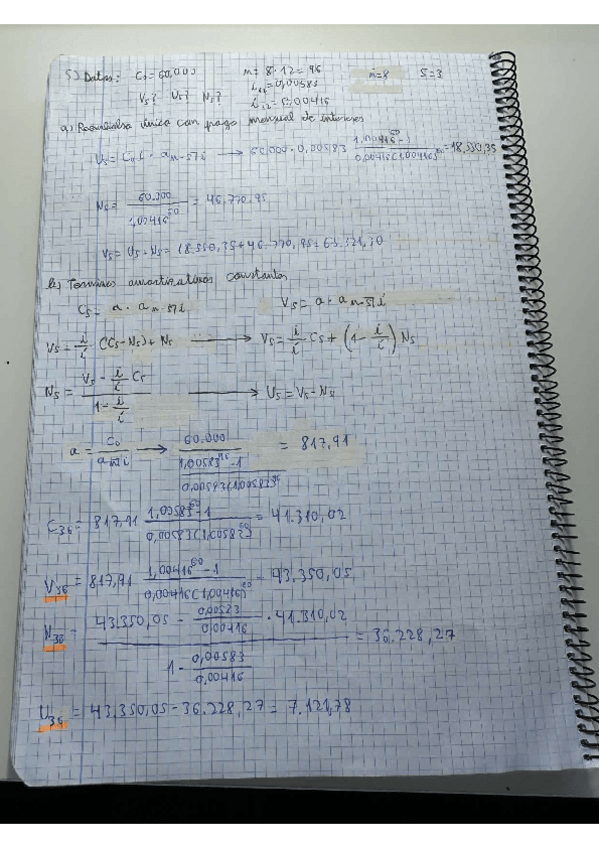 5) Datos: C₀ = 60.000 m = 8·12 = 96 n=8 S=3
V₅? U₅? N₅? i₁₂ = 0,00583
i₁₂ = 0,00416
a) Reembolso único con pago mensual de intereses
U₅ = C₀ i · a n-s┐i → 60.000 · 0,00583 1,00416⁶⁰ - 1 / 0,00416(1,00416)⁶⁰ = 18.550,35
N₅ = 60.000 / 1,00416⁶⁰ = 46.770,95
V₅ = U₅ + N₅ = 18.550,35 + 46.770,95 = 65.321,30
b) Términos amortizativos constantes
C₅ = a · a n-s┐i V₅ = a · a n-s┐i
V₅ = i/i (C₅ - N₅) + N₅ → V₅ = i/i C₅ + (1 - i/i) N₅
N₅ = V₅ - i/i C₅ / 1 - i/i → U₅ = V₅ - N₅
a = C₀ / a n┐i → 60.000 / 1,00583⁹⁶ - 1 / 0,00583(1,00583)⁹⁶ = 817,91
C₃₆ = 817,91 1,00583⁶⁰ - 1 / 0,00583(1,00583)⁶⁰ = 41.310,02
V₃₆ = 817,91 1,00416⁶⁰ - 1 / 0,00416(1,00416)⁶⁰ = 43.350,05
N₃₆ = 43.350,05 - 0,00583/0,00416 · 41.310,02 / 1 - 0,00583/0,00416 = 36.228,27
U₃₆ = 43.350,05 - 36.228,27 = 7.121,78